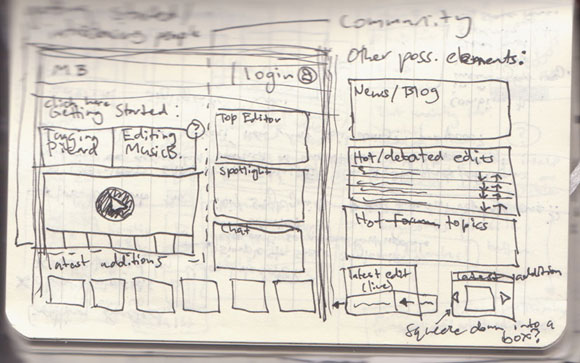 Community
M.B
Login
click here
Getting Started:
?
Tagging
Picard
Editing
MusicB.
Top Editor
Spotlight
Chat
latest additions
Other poss. elements:
News/Blog
Hot/debated edits
Hot Forum topics
latest edit
(live)
latest addition
squeeze down into a
box?